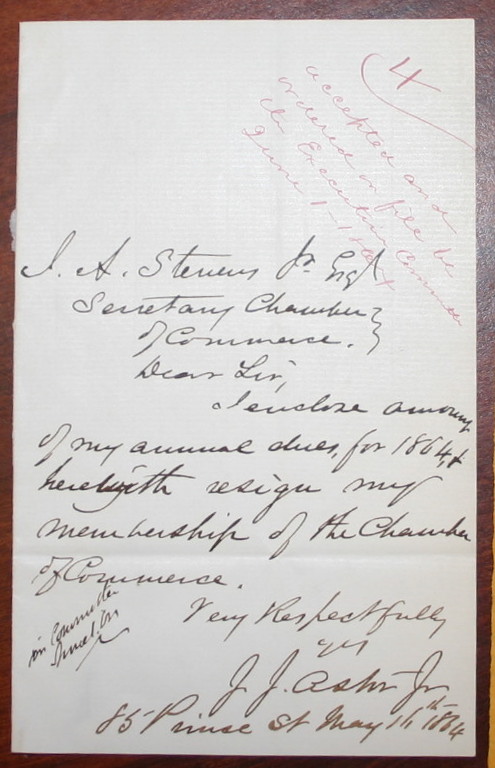 4
accepted and
ordered on file by
the Executive Committee
June 1 - 1864
J. A. Stevens Jr Esq
Secretary Chamber
of Commerce.
Dear Sir,
I enclose amount
of my annual dues, for 1864, &
herewith resign my
membership of the Chamber
of Commerce.
Very Respectfully
yrs
J. J. Astor Jr
85 Prince St May 11th 1864